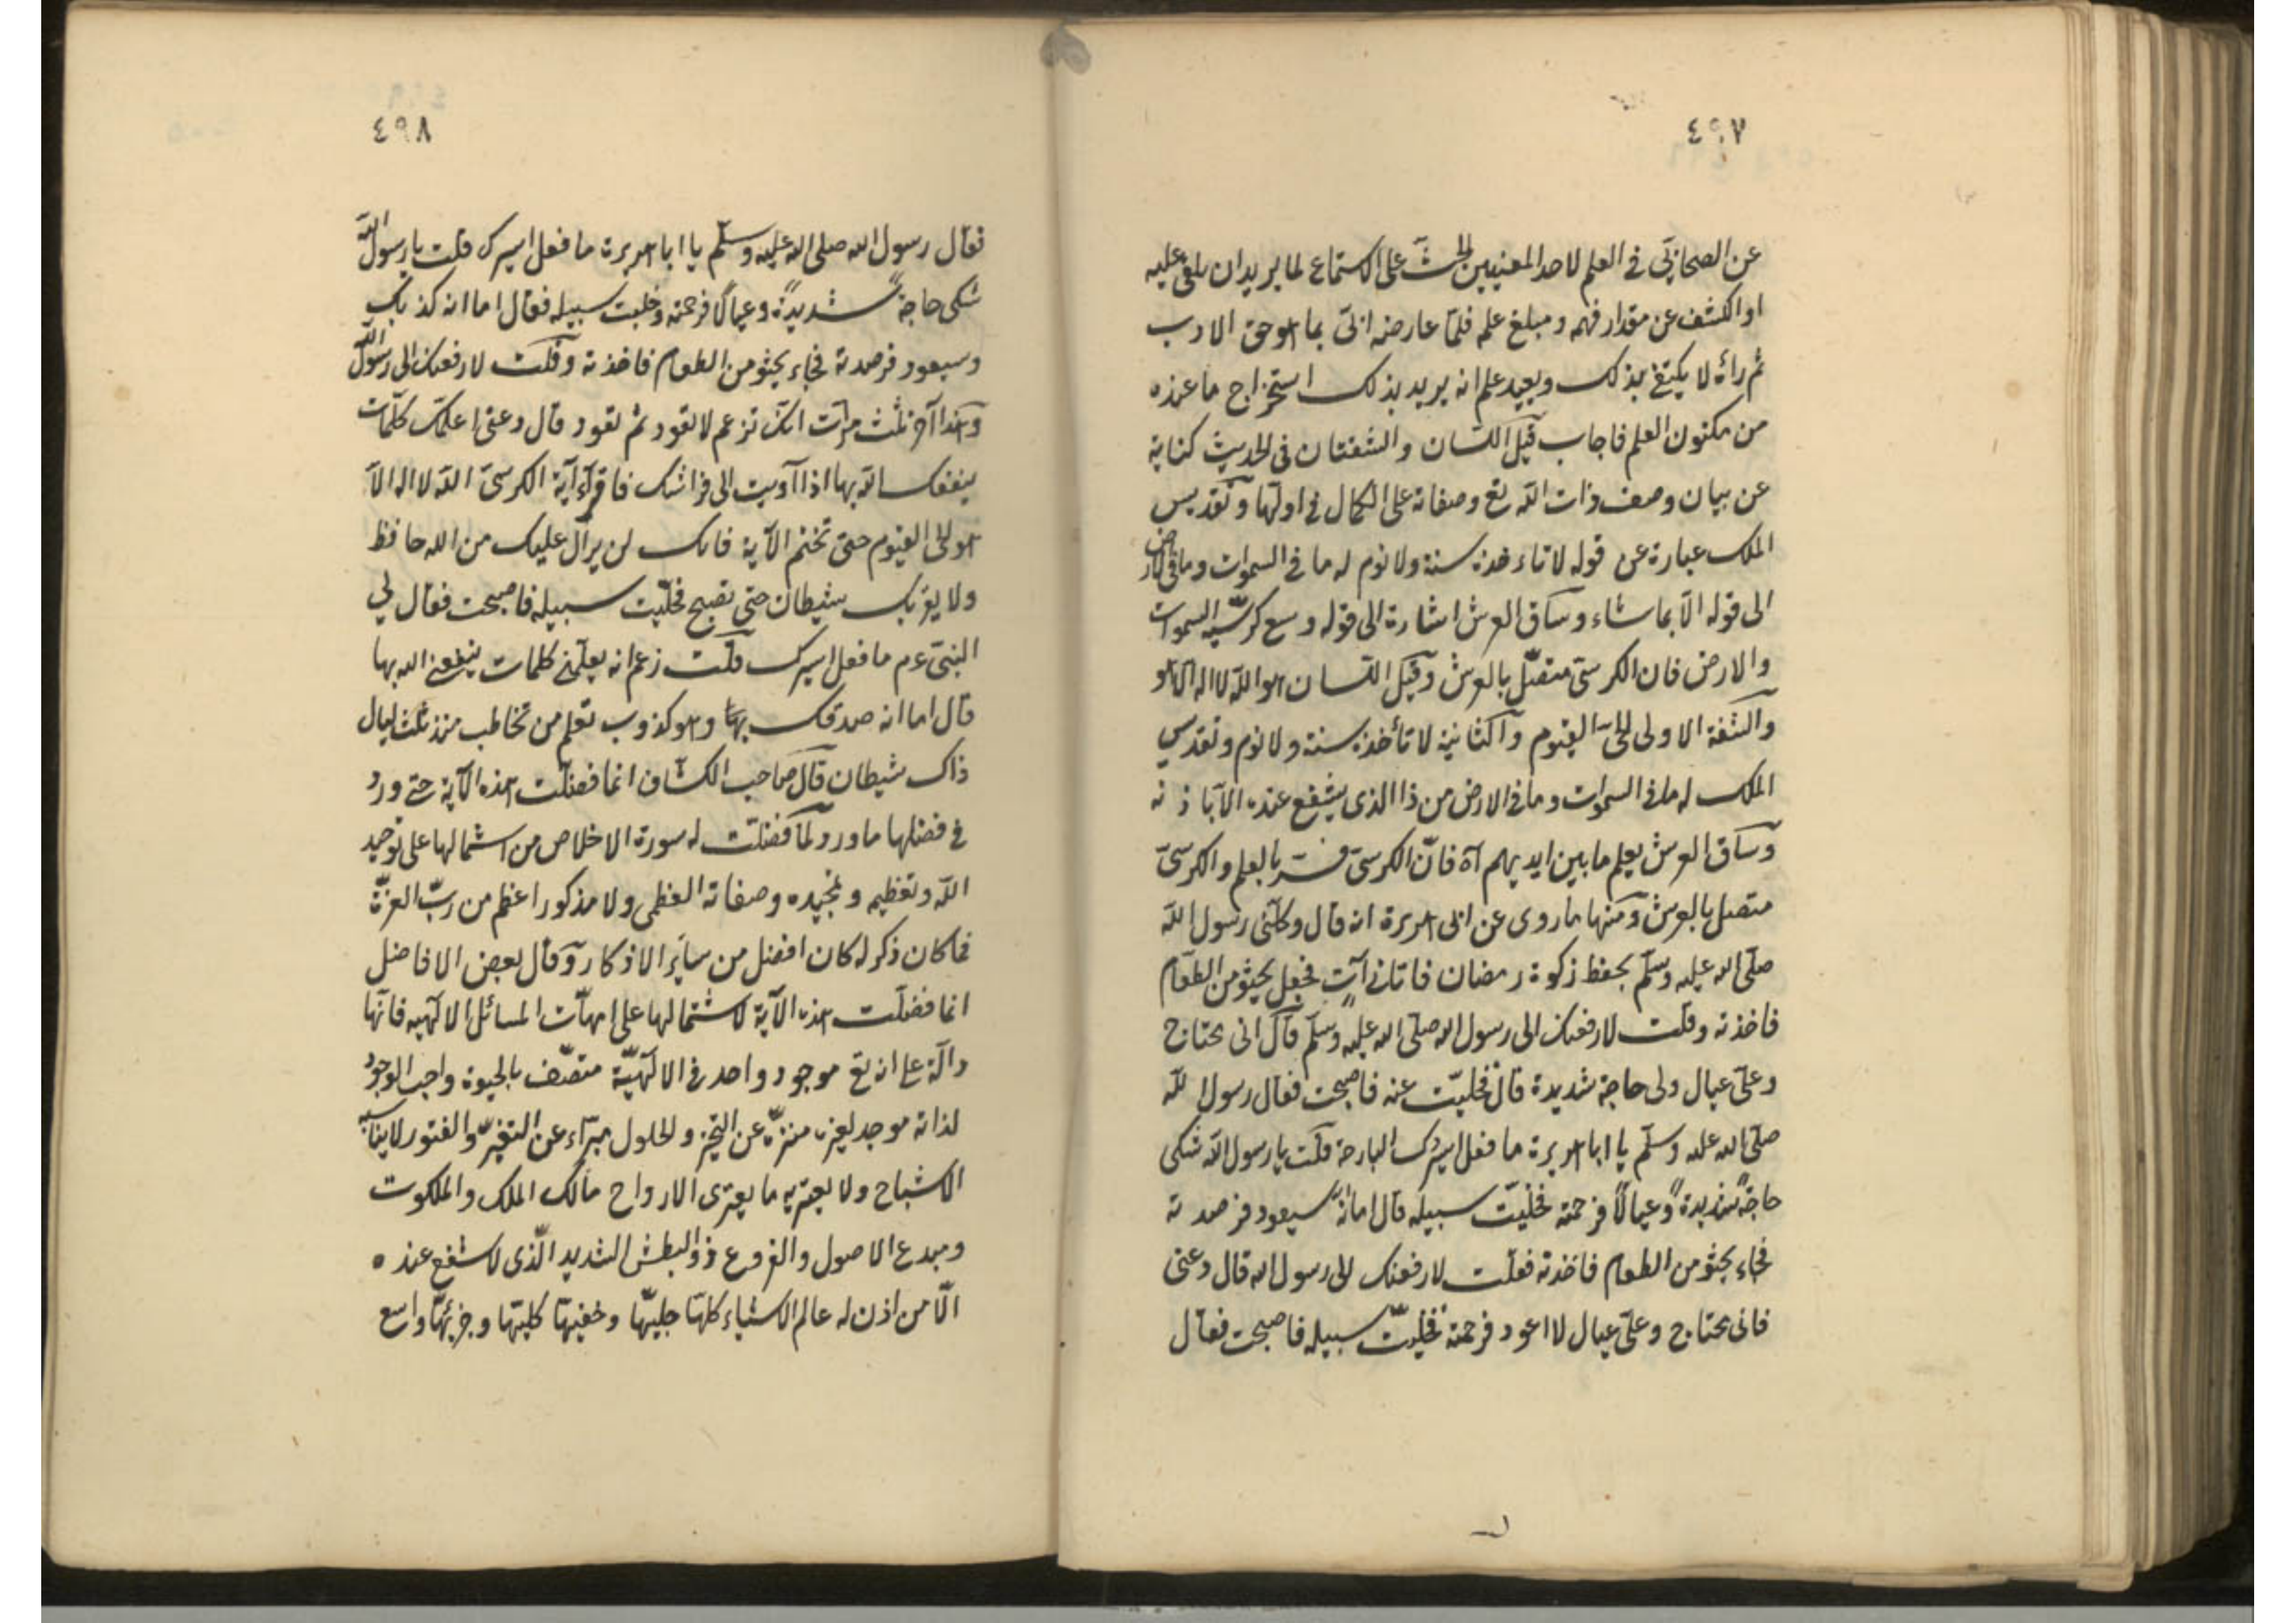 ٤٩٧
عن الصحابی فی العلم لاحد المعنیین الحث علی الاستماع لما یرید ان یلقی علیه
او الکشف عن مقدار فهمه ومبلغ علمه فلما عارضه ابی بما هو حق الادب
ثم رأه لا یکتفی بذلک ویعید علم انه یرید بذلک استخراج ما عنده
من مکنون العلم فاجاب قیل اللسان والشفتان فی الحدیث کنایة
عن بیان وصف ذات الله تع وصفاته علی الکمال فی اولها وتقدیس
الملک عبارة عن قوله لا تاءخذه سنة ولا نوم له ما فی السموات وما فی الارض
الی قوله الا بما شاء وساق العرش اشارة الی قوله وسع کرسیه السموات
والارض فان الکرسی متصل بالعرش وقیل اللسان هو الله لا اله الا هو
والشفة الاولی الحی القیوم والثانیة لا تأخذه سنة ولا نوم وتقدیس
الملک له ما فی السموات وما فی الارض من ذا الذی یشفع عنده الا باذنه
وساق العرش یعلم ما بین ایدیهم آه فان الکرسی فسر بالعلم والکرسی
متصل بالعرش ومنها ما روی عن ابی هریرة انه قال وکلنی رسول الله
صلی الله علیه وسلم بحفظ زکوة رمضان فاتانی آت فجعل یحثو من الطعام
فاخذته وقلت لارفعنک الی رسول الله صلی الله علیه وسلم قال انی محتاج
وعلی عیال ولی حاجة شدیدة قال فخلیت عنه فاصبحت فقال رسول الله
صلی الله علیه وسلم یا ابا هریرة ما فعل اسیرک البارحة قلت یا رسول الله شکی
حاجة شدیدة وعیالا فرحمته فخلیت سبیله قال اما انه سیعود فرصدته
فجاء یحثو من الطعام فاخذته فقلت لارفعنک الی رسول الله قال دعنی
فانی محتاج وعلی عیال لا اعود فرحمته فخلیت سبیله فاصبحت فقال
٤٩٨
فقال رسول الله صلی الله علیه وسلم یا ابا هریرة ما فعل اسیرک قلت یا رسول الله
شکی حاجة شدیدة وعیالا فرحمته وخلیت سبیله فقال اما انه کذبک
وسیعود فرصدته فجاء یحثو من الطعام فاخذته وقلت لارفعنک الی رسول الله
وهذا آخر ثلث مرات انک تزعم لا تعود ثم تعود قال دعنی اعلمک کلمات
ینفعک الله بها اذا آویت الی فراشک فاقرأ آیة الکرسی الله لا اله الا
هو الحی القیوم حتی تختم الآیة فانک لن یزال علیک من الله حافظ
ولا یقربک شیطان حتی تصبح فخلیت سبیله فاصبحت فقال لی
النبی عم ما فعل اسیرک قلت زعم انه یعلمنی کلمات ینفعنی الله بها
قال اما انه صدقک بها وهو کذوب تعلم من تخاطب منذ ثلث لیال
ذاک شیطان قال صاحب الکشاف انما فضلت هذه الآیة حتی ورد
فی فضلها ما ورد لما فضلت له سورة الاخلاص من اشتمالها علی توحید
الله وتعظیمه وتمجیده وصفاته العظمی ولا مذکور اعظم من رب العزة
فما کان ذکرا له کان افضل من سائر الاذکار وقال بعض الافاضل
انما فضلت هذه الآیة لاشتمالها علی امهات المسائل الالهیه فانها
دالة علی انه تع موجود واحد فی الالهیة متصف بالحیوة واجب الوجود
لذاته موجد لغیره منزه عن التحیز والحلول مبرآء عن التغیر والفتور لا یناسب
الاشباح ولا یعتریه ما یعتری الارواح مالک الملک والملکوت
ومبدع الاصول والفروع ذو البطش الشدید الذی لا یشفع عنده
الا من اذن له عالم الاشیاء کلها جلیها وخفیها کلیها وجزئها واسع